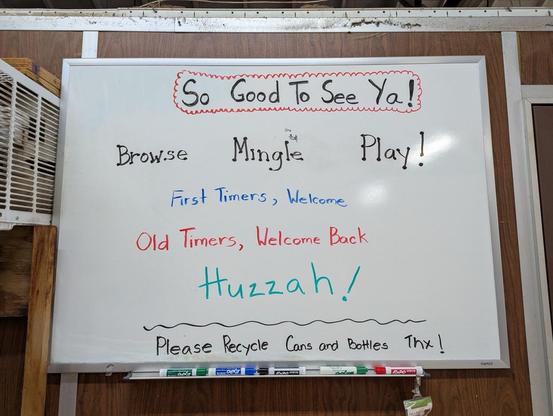 So Good To See Ya!
Browse Mingle Play!
First Timers, Welcome
Old Timers, Welcome Back
Huzzah!
Please Recycle Cans and Bottles Thx!